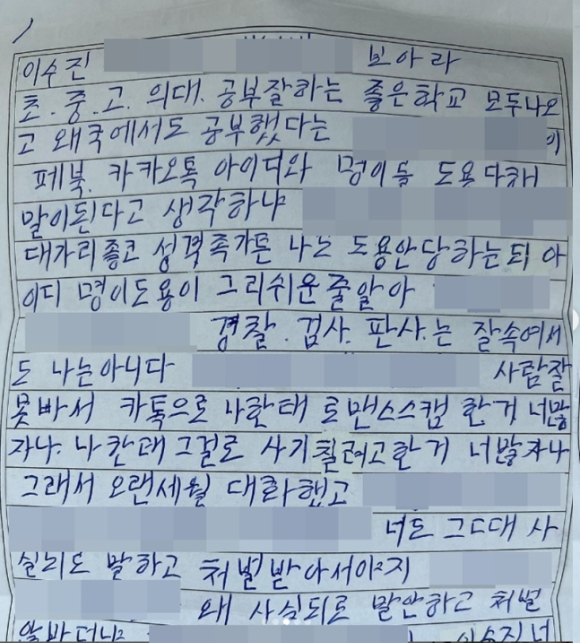 이수진 보아라
초.중.고. 의대. 공부잘하는 좋은학교 모두나오
고 왜국에서도 공부했다는 이
페북. 카카오톡 아이디와 명이를 도용당해
말이된다고 생각하냐
대가리좋코 성격족가튼 나는 도용안당하는되 아
이디 명이도용이 그리쉬운줄알아
경찰. 검사. 판사.는 잘속여서
도 나는아니다 사람잘
못바서 카톡으로 나한태 로맨스스캠 한거 너맞
자나. 나한태 그걸로 사기칠려고한거 너맞자나
그래서 오랜세월 대화했고
너도 그 사
실되로 말하고 처벌받아서야지
왜 사실되로 말안하고 처벌
이수진너